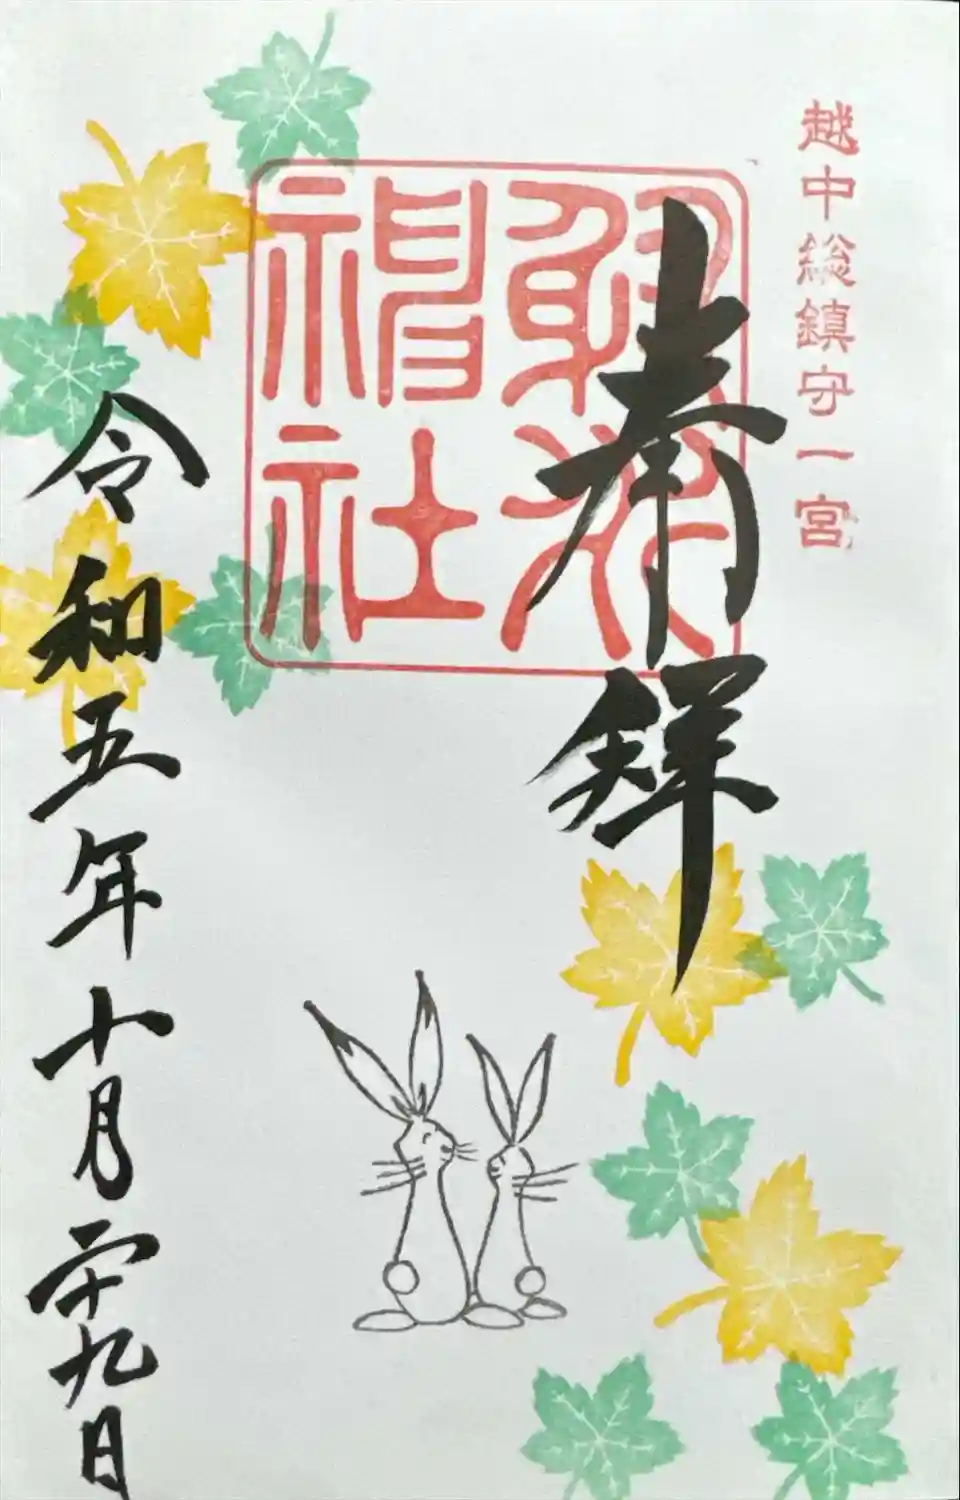 越中総鎮守一宮
奉拝
射水神社
令和五年十月二十九日